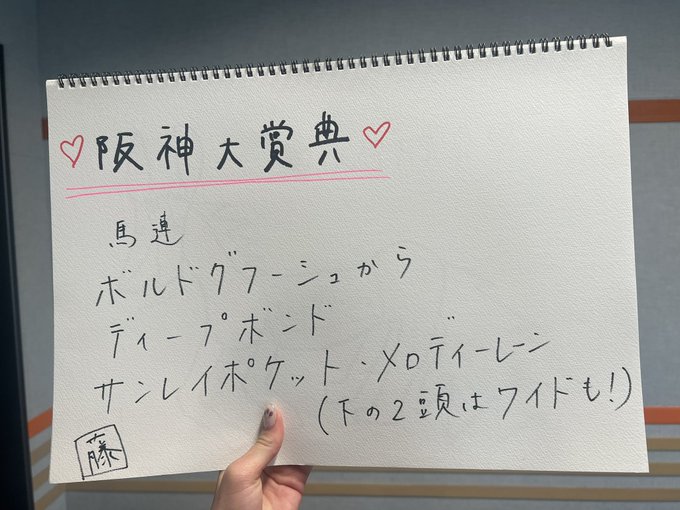 ♡阪神大賞典♡
馬連
ボルドグフーシュから
ディープボンド
サンレイポケット・メロディーレーン
(下の2頭はワイドも!)
藤